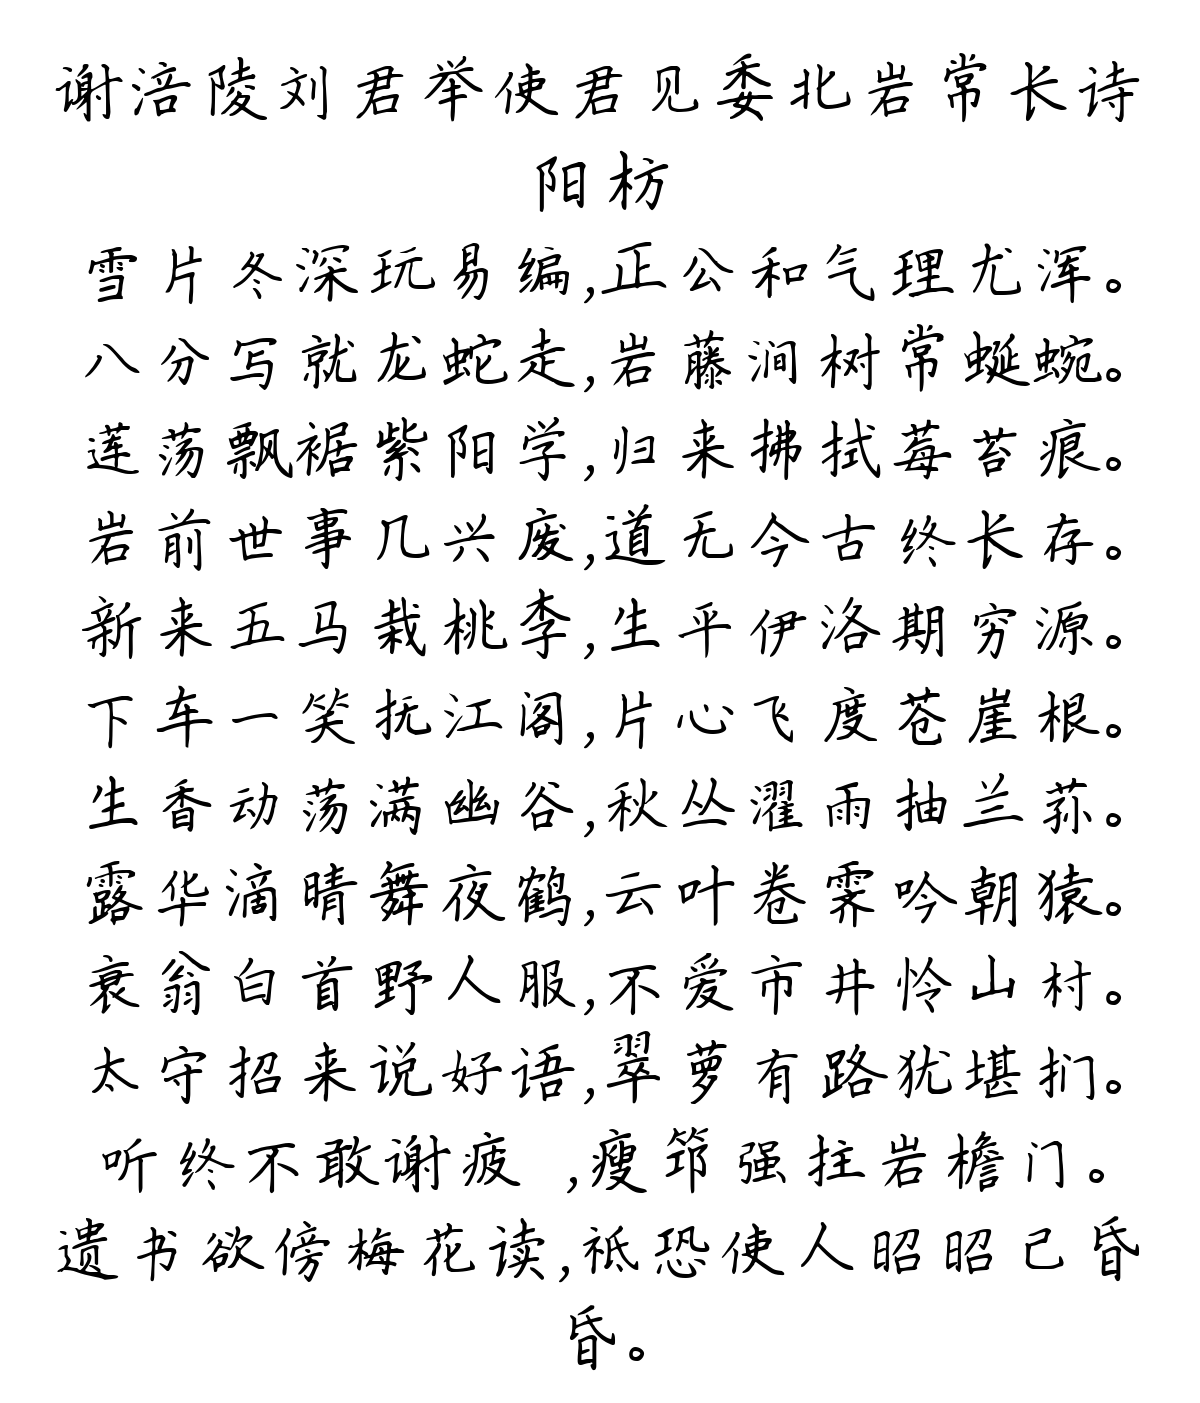 谢涪陵刘君举使君见委北岩常长诗
阳枋
雪片冬深玩易编,正公和气理尤浑。
八分写就龙蛇走,岩藤涧树常蜒蜿。
莲荡飘裾紫阳学,归来拂拭莓苔痕。
岩前世事几兴废,道无今古终长存。
新来五马栽桃李,生平伊洛期穷源。
下车一笑抚江阁,片心飞度苍崖根。
生香动荡满幽谷,秋丛濯雨抽兰荪。
露华滴晴舞夜鹤,云叶卷霁吟朝猿。
衰翁白首野人服,不爱市井怜山村。
太守招来说好语,翠萝有路犹堪扪。
听终不敢谢疲 ,瘦筇强拄岩檐门。
遗书欲傍梅花读,祗恐使人昭昭己昏
昏。